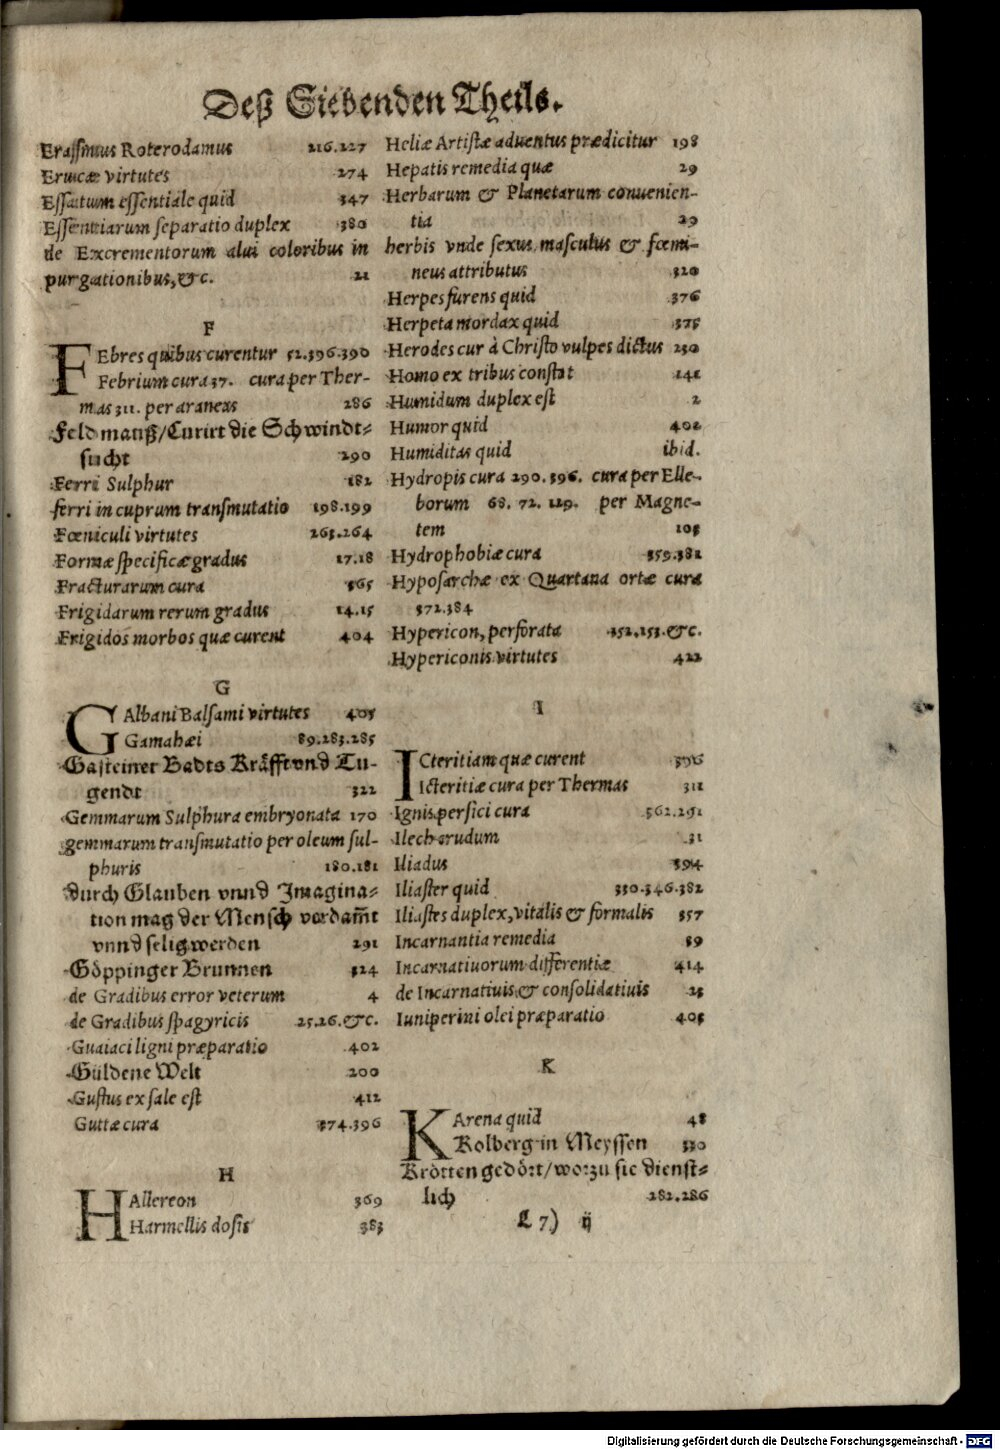 Deß Siebenden Theils.
Erassmus Roterodamus 216.227
Erucæ virtutes 274
Essatum essentiale quid 347
Essentiarum separatio duplex 380
de Excrementorum alui coloribus in
purgationibus, &c. 21
F
FEbres quibus curentur 52.396.390
Febrium cura 37. cura per Ther-
mas 311. per araneas 286
Feldmauß/Curirt die Schwindt-
sucht 290
Ferri Sulphur 182
ferri in cuprum transmutatio 198.199
Fœniculi virtutes 263.264
Formæ specificæ gradus 17.18
Fracturarum cura 365
Frigidarum rerum gradus 14.15
Frigidos morbos quæ curent 404
G
GAlbani Balsami virtutes 405
Gamahæi 89.283.285
Gasteiner Badts Kräfft vnd Tu-
gendt 322
Gemmarum Sulphura embryonata 170
gemmarum transmutatio per oleum sul-
phuris 180.181
durch Glauben vnnd Imagina-
tion mag der Mensch verdam̃t
vnnd selig werden 291
Göppinger Brunnen 324
de Gradibus error veterum 4
de Gradibus spagyricis 25.26.&c.
Guaiaci ligni præparatio 402
Güldene Welt 200
Gustus ex sale est 412
Guttæ cura 374.396
H
HAllereon 369
Harmellis dosis 383
Heliæ Artistæ aduentus prædicitur 198
Hepatis remedia quæ 29
Herbarum & Planetarum conuenien-
tia 29
herbis vnde sexus masculus & fœmi-
neus attributus 320
Herpes furens quid 376
Herpeta mordax quid 375
Herodes cur à Christo vulpes dictus 230
Homo ex tribus constat 141
Humidum duplex est 2
Humor quid 402
Humiditas quid ibid.
Hydropis cura 290.396. cura per Elle-
borum 68. 72. 119. per Magne-
tem 105
Hydrophobiæ cura 359.381
Hyposarchæ ex Quartana ortæ cura
372.384
Hypericon, perforata 352.153.&c.
Hypericonis virtutes 422
I
ICteritiam quæ curent 396
Icteritiæ cura per Thermas 311
Ignis persici cura 362.291
Ilech crudum 31
Iliadus 394
Iliaster quid 330.346.382
Iliastes duplex, vitalis & formalis 357
Incarnantia remedia 39
Incarnatiuorum differentiæ 414
de Incarnatiuis & consolidatiuis 25
Iuniperini olei præparatio 405
K
KArena quid 48
Kolberg in Meyssen 330
Krötten gedört/worzu sie dienst-
lich 282.286
L 7) ij
Digitalisierung gefördert durch die Deutsche Forschungsgemeinschaft - DFG